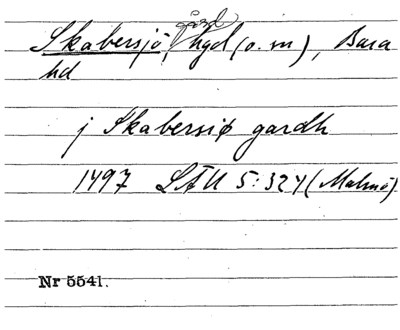 gård
Skabersjö, hgd (o. m), Bara
hd
j Skabersiø gardh
1497 LÄU 5:324 (Malmö)
Nr 5541.